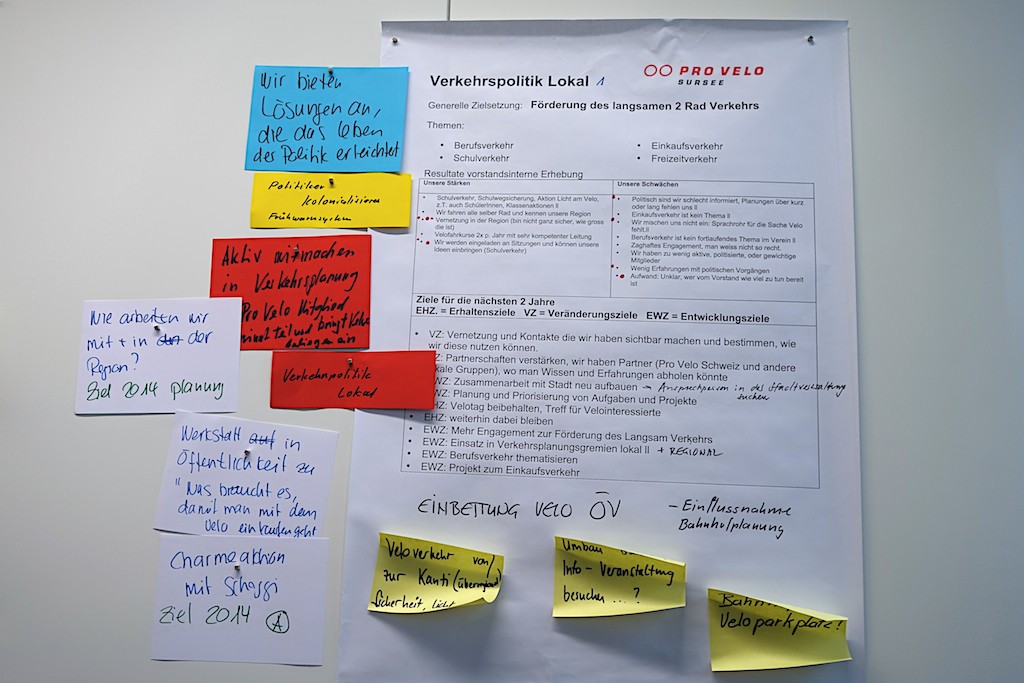 Wir bieten
Lösungen an,
die das Leben
der Politik erleichtet
Politiker
Kolonialisieren
Frühwarnsystem
Aktiv mitmachen
in Verkehrsplanung
Pro Velo Mitglied
nimmt teil und bringt
ein
Wie arbeiten wir
mit + in der
Region?
Ziel 2014 planung
Verkehrspolitik
Lokal
Werkstatt auf in
Öffentlichkeit zu
"Was braucht es,
damit man mit dem
Velo einkaufen geht
Charmeaktion
mit Schoggi
Ziel 2014 A
Verkehrspolitik Lokal 1
PRO VELO
SURSEE
Generelle Zielsetzung: Förderung des langsamen 2 Rad Verkehrs
Themen:
• Berufsverkehr
• Schulverkehr
• Einkaufsverkehr
• Freizeitverkehr
Resultate vorstandsinterne Erhebung
Unsere Stärken
• Schulverkehr, Schulwegsicherung, Aktion Licht am Velo,
z.T. auch SchülerInnen, Klassenaktionen II
• Wir fahren alle selber Rad und kennen unsere Region
• Vernetzung in der Region (bin nicht ganz sicher, wie gross
die ist)
• Velofahrkurse 2x p. Jahr mit sehr kompetenter Leitung
• Wir werden eingeladen an Sitzungen und können unsere
Ideen einbringen (Schulverkehr)
Unsere Schwächen
• Politisch sind wir schlecht informiert, Planungen über kurz
oder lang fehlen uns II
• Einkaufsverkehr ist kein Thema II
• Wir machen uns nicht ein: Sprachrohr für die Sache Velo
fehlt.II
• Berufsverkehr ist kein fortlaufendes Thema im Verein II
• Zaghaftes Engagement, man weiss nicht so recht.
• Wir haben zu wenig aktive, politisierte, oder gewichtige
Mitglieder
• Wenig Erfahrungen mit politischen Vorgängen
• Aufwand: Unklar, wer vom Vorstand wie viel zu tun bereit
ist
Ziele für die nächsten 2 Jahre
EHZ. = Erhaltensziele VZ = Veränderungsziele EWZ = Entwicklungsziele
• VZ: Vernetzung und Kontakte die wir haben sichtbar machen und bestimmen, wie
wir diese nutzen können.
Z: Partnerschaften verstärken, wir haben Partner (Pro Velo Schweiz und andere
kale Gruppen), wo man Wissen und Erfahrungen abholen könnte
WZ: Zusammenarbeit mit Stadt neu aufbauen → Ansprechperson in der Stadtverwaltung
suchen
WZ: Planung und Priorisierung von Aufgaben und Projekte
HZ: Velotag beibehalten, Treff für Velointeressierte
• EHZ: weiterhin dabei bleiben
• EWZ: Mehr Engagement zur Förderung des Langsam Verkehrs
• EWZ: Einsatz in Verkehrsplanungsgremien lokal II + REGIONAL
• EWZ: Berufsverkehr thematisieren
• EWZ: Projekt zum Einkaufsverkehr
EINBETTUNG VELO ÖV
- Einflussnahme
Bahnhofplanung
Veloverkehr von/
zur Kanti (überregional)
Sicherheit, Licht
Umbau
Info-Veranstaltung
besuchen...?
Veloparkplatz!